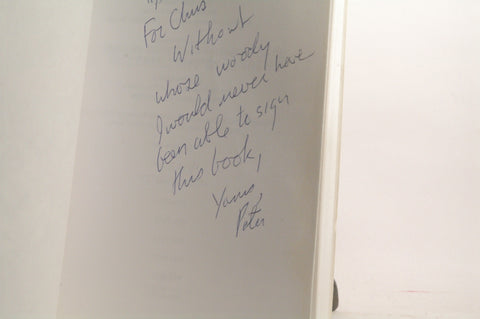 For Chris
Without
whose woody
I would never have
been able to sign
this book,
Yours,
Peter